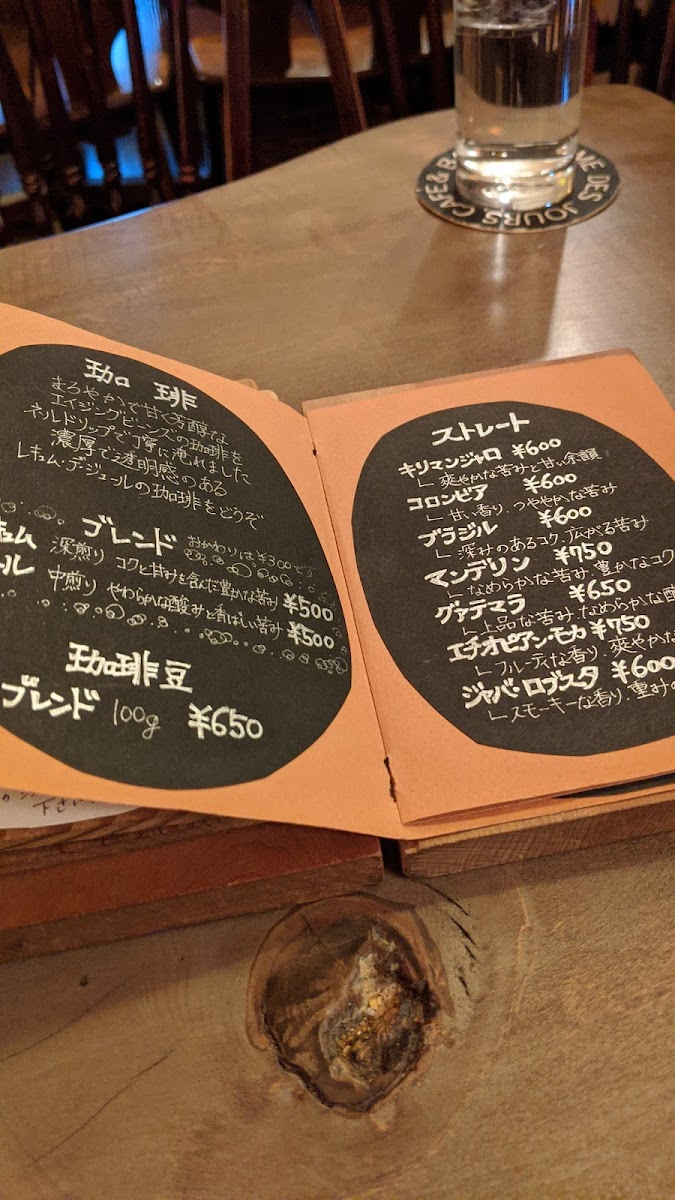 CAFE & B
ME DES JOURS
珈琲
まろやかで甘く芳醇な
エイジングビーンズの珈琲を
ネルドリップで丁寧に淹れました
濃厚で透明感のある
レキュム・デ・ジュールの珈琲をどうぞ
ブレンド おかわりは¥300です
キュム 深煎り コクと甘みを含んだ豊かな苦み ¥500
ール 中煎り やわらかな酸みと香ばしい苦み ¥500
珈琲豆
ブレンド 100g ¥650
下さい
ストレート
キリマンジャロ ¥600
爽やかな苦みと甘い余韻
コロンビア ¥600
甘い香り、つややかな苦み
ブラジル ¥600
深みのあるコク、広がる苦み
マンデリン ¥750
なめらかな苦み、豊かなコク
グァテマラ ¥650
上品な苦み なめらかな酸
エチオピアン・モカ ¥750
フルーティな香り、爽やかな
ジャバ・ロブスタ ¥600
スモーキーな香り、重みの